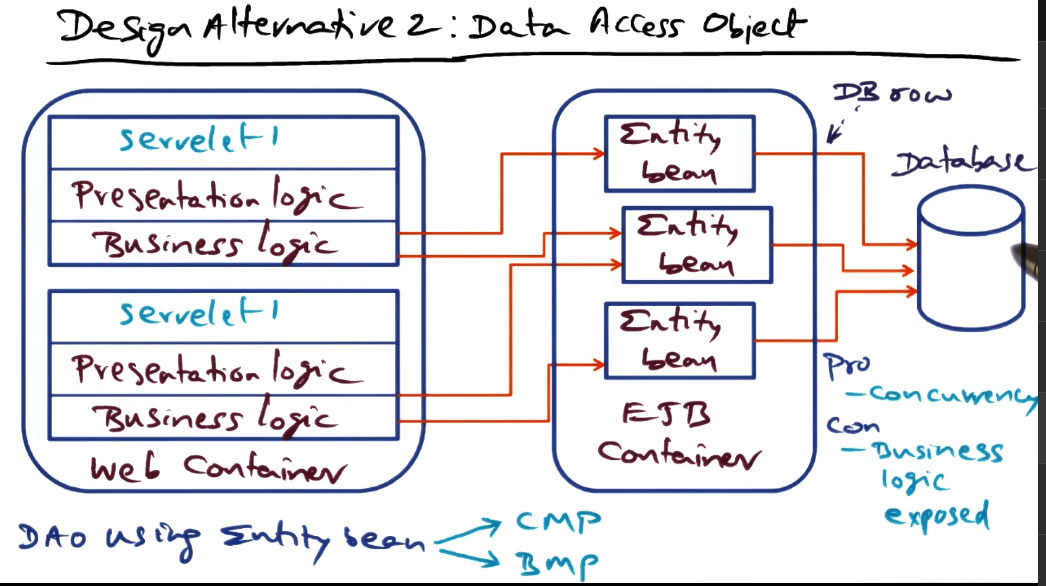 Design Alternative 2: Data Access Object
servelet 1
Presentation logic
Business logic
servelet 1
Presentation logic
Business logic
Web Container
Entity
bean
Entity
bean
Entity
bean
EJB
Container
DB row
Database
Pro
- Concurrency
Con
- Business
logic
exposed
DAO using Entity bean
CMP
BMP